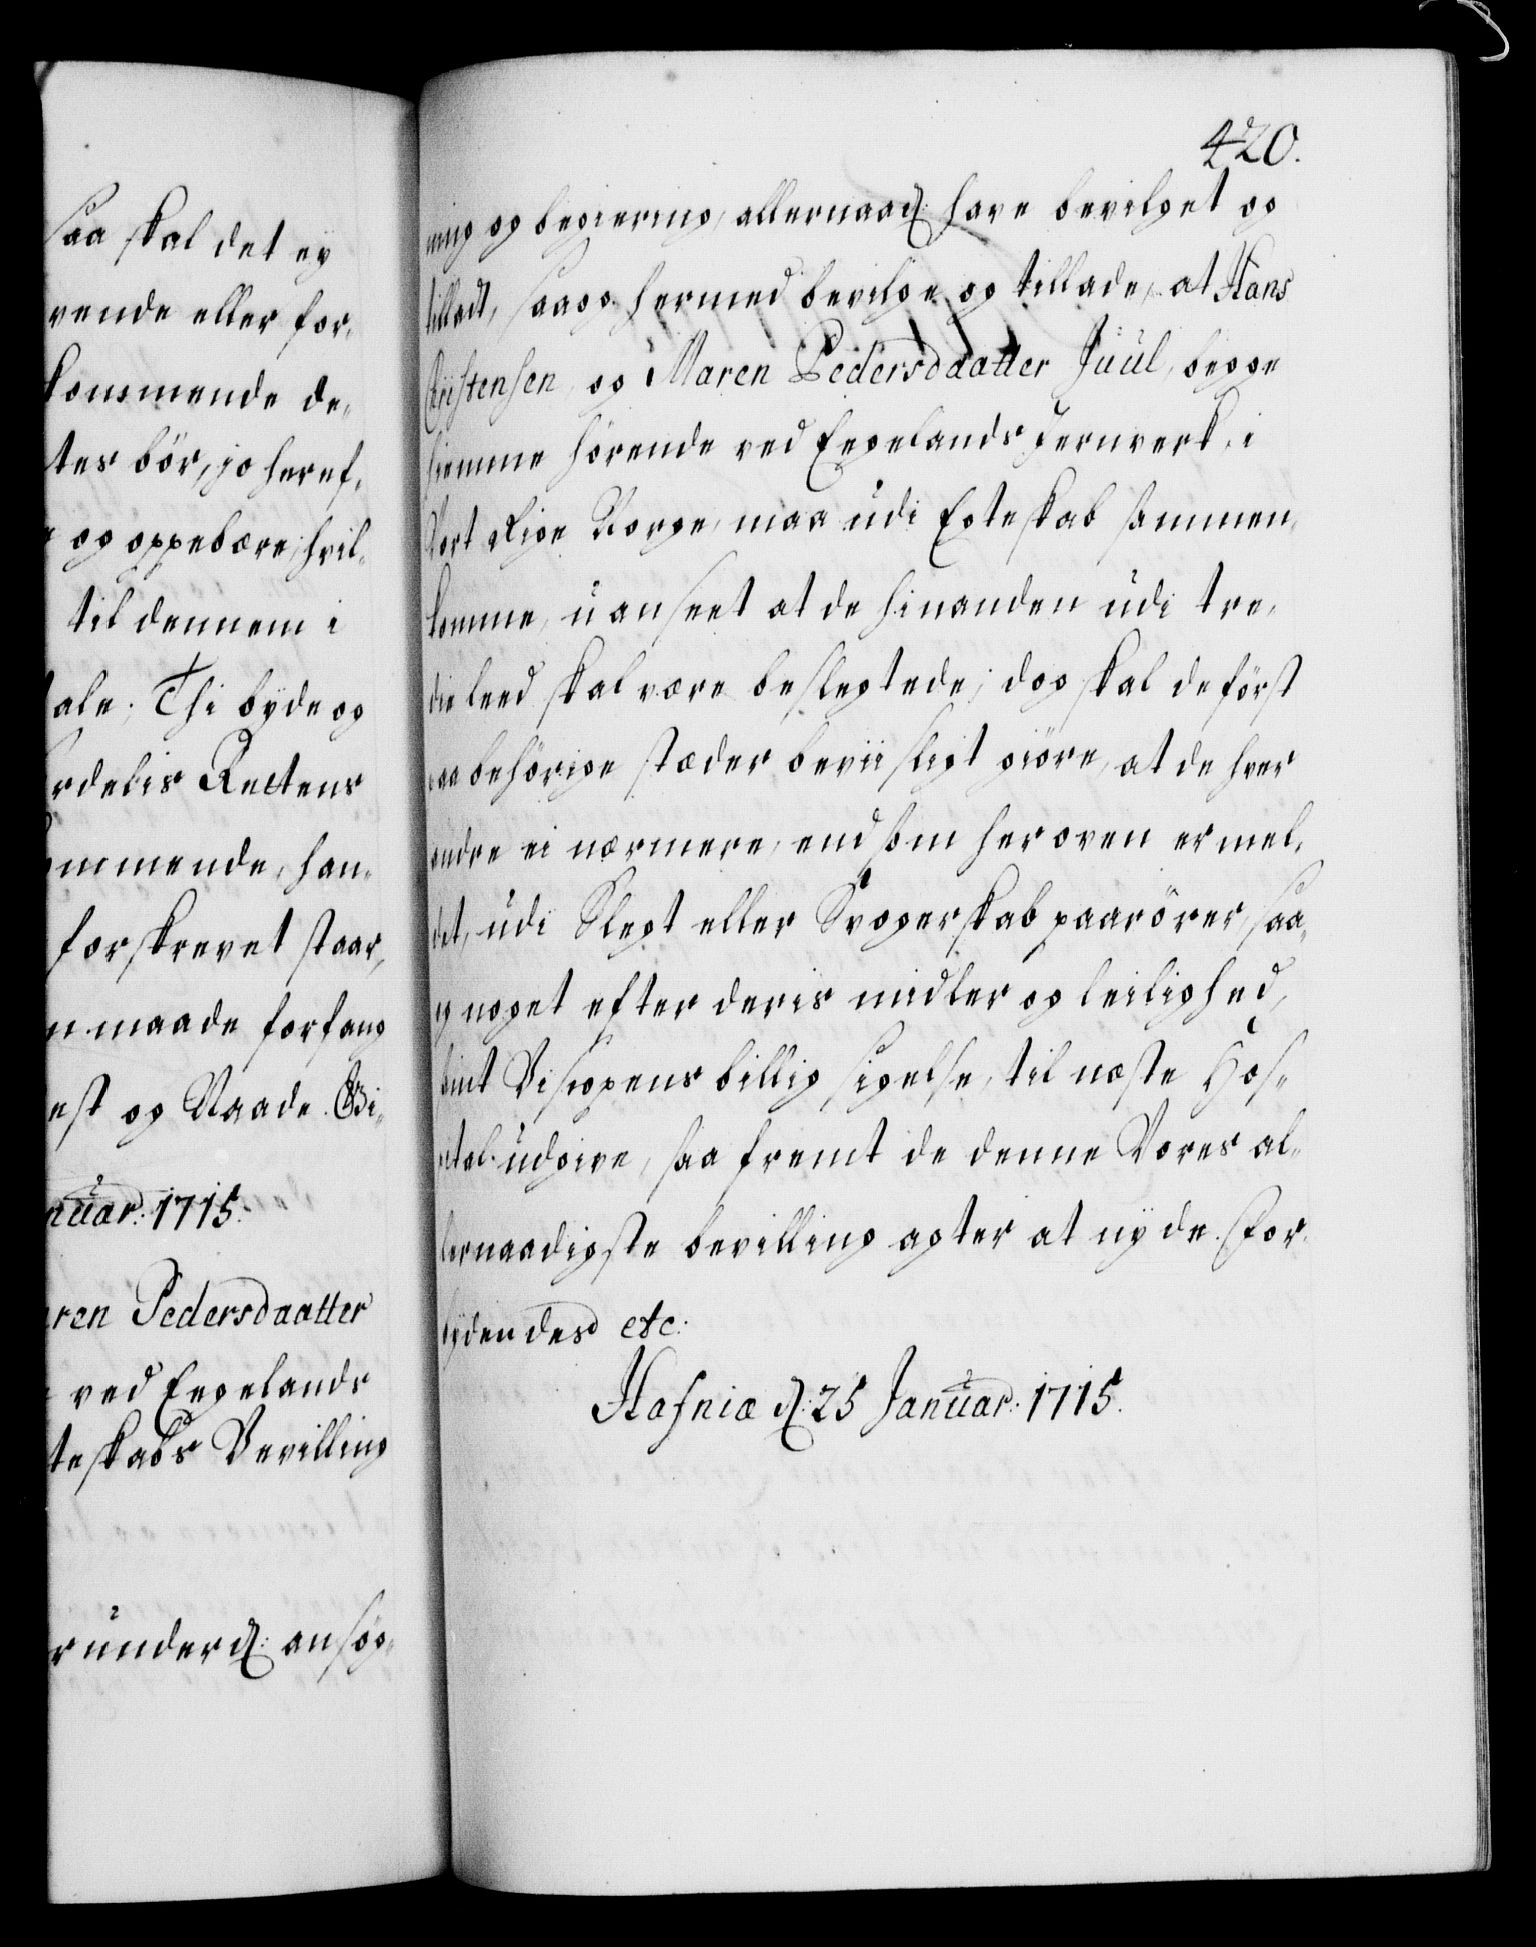 saa skal det ey
vende eller for¬
kommende de¬
tes bör, jo heref¬
og oppebære, hvil¬
til dennem i
tale; Thi byde og
rdelis Rettens
ommende, han¬
forskrevet staar,
n maade forfang
est og Naade. Gi¬
nuar: 1715.
ren Pedersdaatter
ved Eegelands
teskabs Bevilling
runderd: ansøg¬
420.
ning og begiering, allernaad: have bevilget og
tilladt, saa og hermed bevilge og tillade, at Hans
Christensen, og Maren Pedersdaatter Juul, begge
hiemme hörende ved Eegelands Jernverk, i
Vort Rige Norge, maa udi Egteskab sammen¬
komme, uanseet at de hinanden udi tre¬
die leed skal være beslegtede; dog skal de först
paa behörige stæder beviisligt giöre, at de hver
andre ei nærmere, end som her oven er mel¬
det, udi Slegt eller Svogerskab paarörer, saa¬
og noget efter deris midler og leilighed,
samt Biscopens billig sigelse, til næste Hos¬
pital udgive, saa fremt de denne Vores al¬
lernaadigste bevilling agter at nyde. For¬
bydendes etc:
Hafniæ d: 25 Januar: 1715.